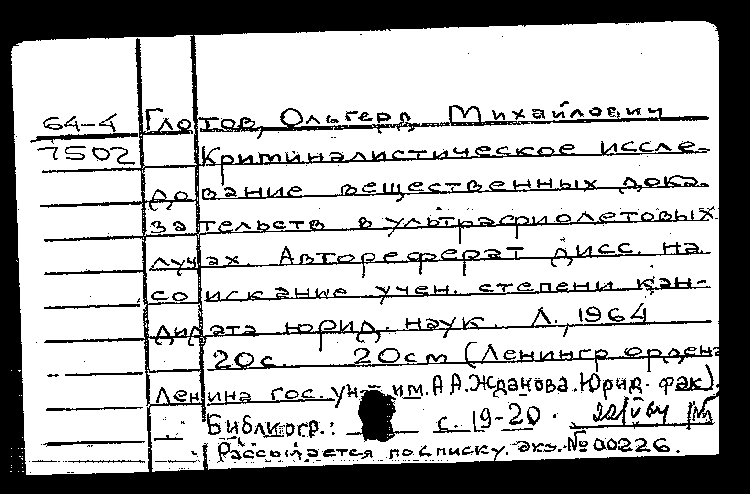 64-4 Глотов, Ольгерд Михайлович
7502 Криминалистическое иссле-
дование вещественных дока-
зательств в ультрафиолетовых
лучах. Автореферат дисс. на
соискание учен. степени кан-
дидата юрид. наук. Л., 1964
20с. 20см (Ленингр орден
Ленина гос. ун-т им. А А. Жданова. Юрид. фак).
Библиогр.: с. 19-20.
Рассылается по списку. экз. № 00226.